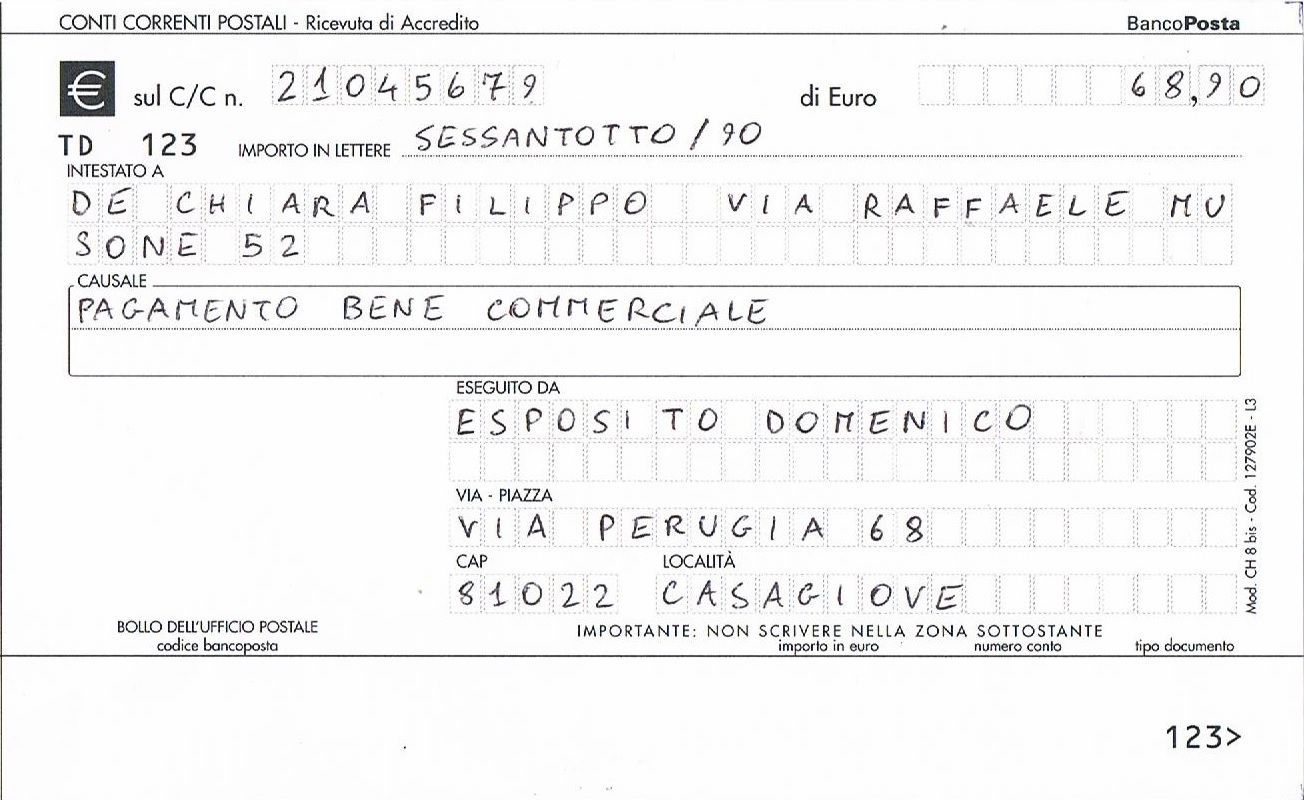 CONTI CORRENTI POSTALI - Ricevuta di Accredito BancoPosta
€ sul C/C n. 21045679 di Euro 68,90
TD 123 IMPORTO IN LETTERE SESSANTOTTO/90
INTESTATO A
DE CHIARA FILIPPO VIA RAFFAELE MU
SONE 52
CAUSALE
PAGAMENTO BENE COMMERCIALE
ESEGUITO DA
ESPOSITO DOMENICO
VIA - PIAZZA
VIA PERUGIA 68
CAP LOCALITÀ
81022 CASAGIOVE
Mod. CH 8 bis - Cod. 127902E - L3
BOLLO DELL'UFFICIO POSTALE IMPORTANTE: NON SCRIVERE NELLA ZONA SOTTOSTANTE
codice bancoposta importo in euro numero conto tipo documento
123>